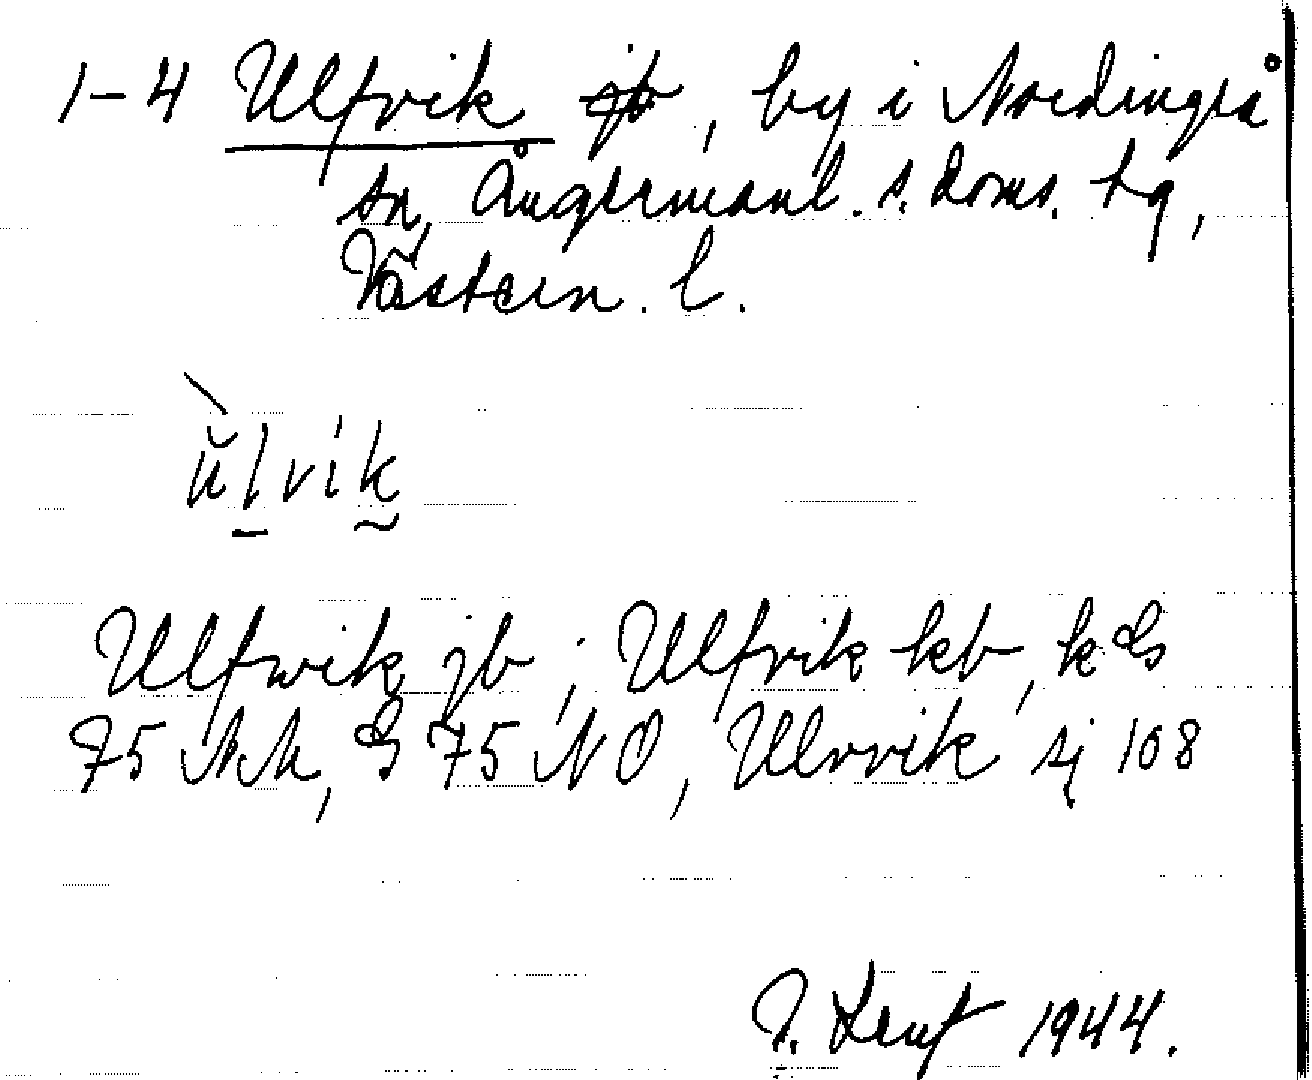 1-4 Ulfvik jb, by i Nordingrå
sn, Ångermanl. s. doms. tg,
Västern. l.
ùlvik
Ulfwik jb, Ulfvik kb, k GS
75 NM, GS 75 NO, Ulvvik sj 108
1944.